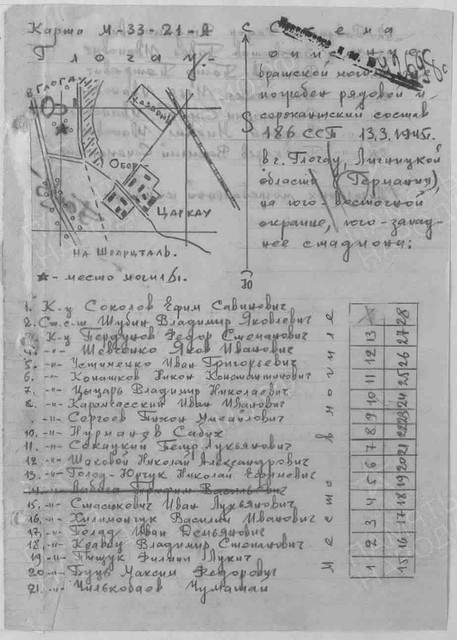 Карта М-33-21-А
Глогау
С
Схема
братской могилы
погребен рядовой и
сержантский состав
186 ССП 13.3.1945г.
в г. Глогау, Лигницкой
области (Германия),
на юго-восточной
окраине, юго-запад-
нее стадиона:
ГЛОГАУ
КАЗАРМЫ
ОБОР
ЦАРКАУ
НА ШВАРЦТАЛЬ.
- место могилы.
Ю
1. К-ц Соколов Ефим Савинович
2. Ст.с-т Шубин Владимир Яковлевич
К-ц Пердунов Федор Степанович
4. -"- Шевченко Яков Иванович
5. -"- Устименко Иван Григорьевич
6. -"- Конашков Никон Константинович
7. -"- Цыцарь Владимир Николаевич
8. -"- Иван Иванович
-"- Сергеев Тихон
10. -"- Нурманов Садых
11. -"- Лукьянович
12. -"- Шахов Николай Александрович
13. -"- Голод-Юрчук Николай Ефимович
15. -"- Стасюкович Иван Лукьянович
16. -"- Хилимончук Василий Иванович
17. -"- Иван Демьянович
18. -"- Кравец Владимир Степанович
19. -"- Пищук Филипп Лукич
20. -"- Буць Максим Федорович
21. -"- Чильковцов
Место в могиле
1 2 3 4 5 6 7 8 9 10 11 12 13
15 16 17 18 19 20 21 22 23 24 25 26 27 28